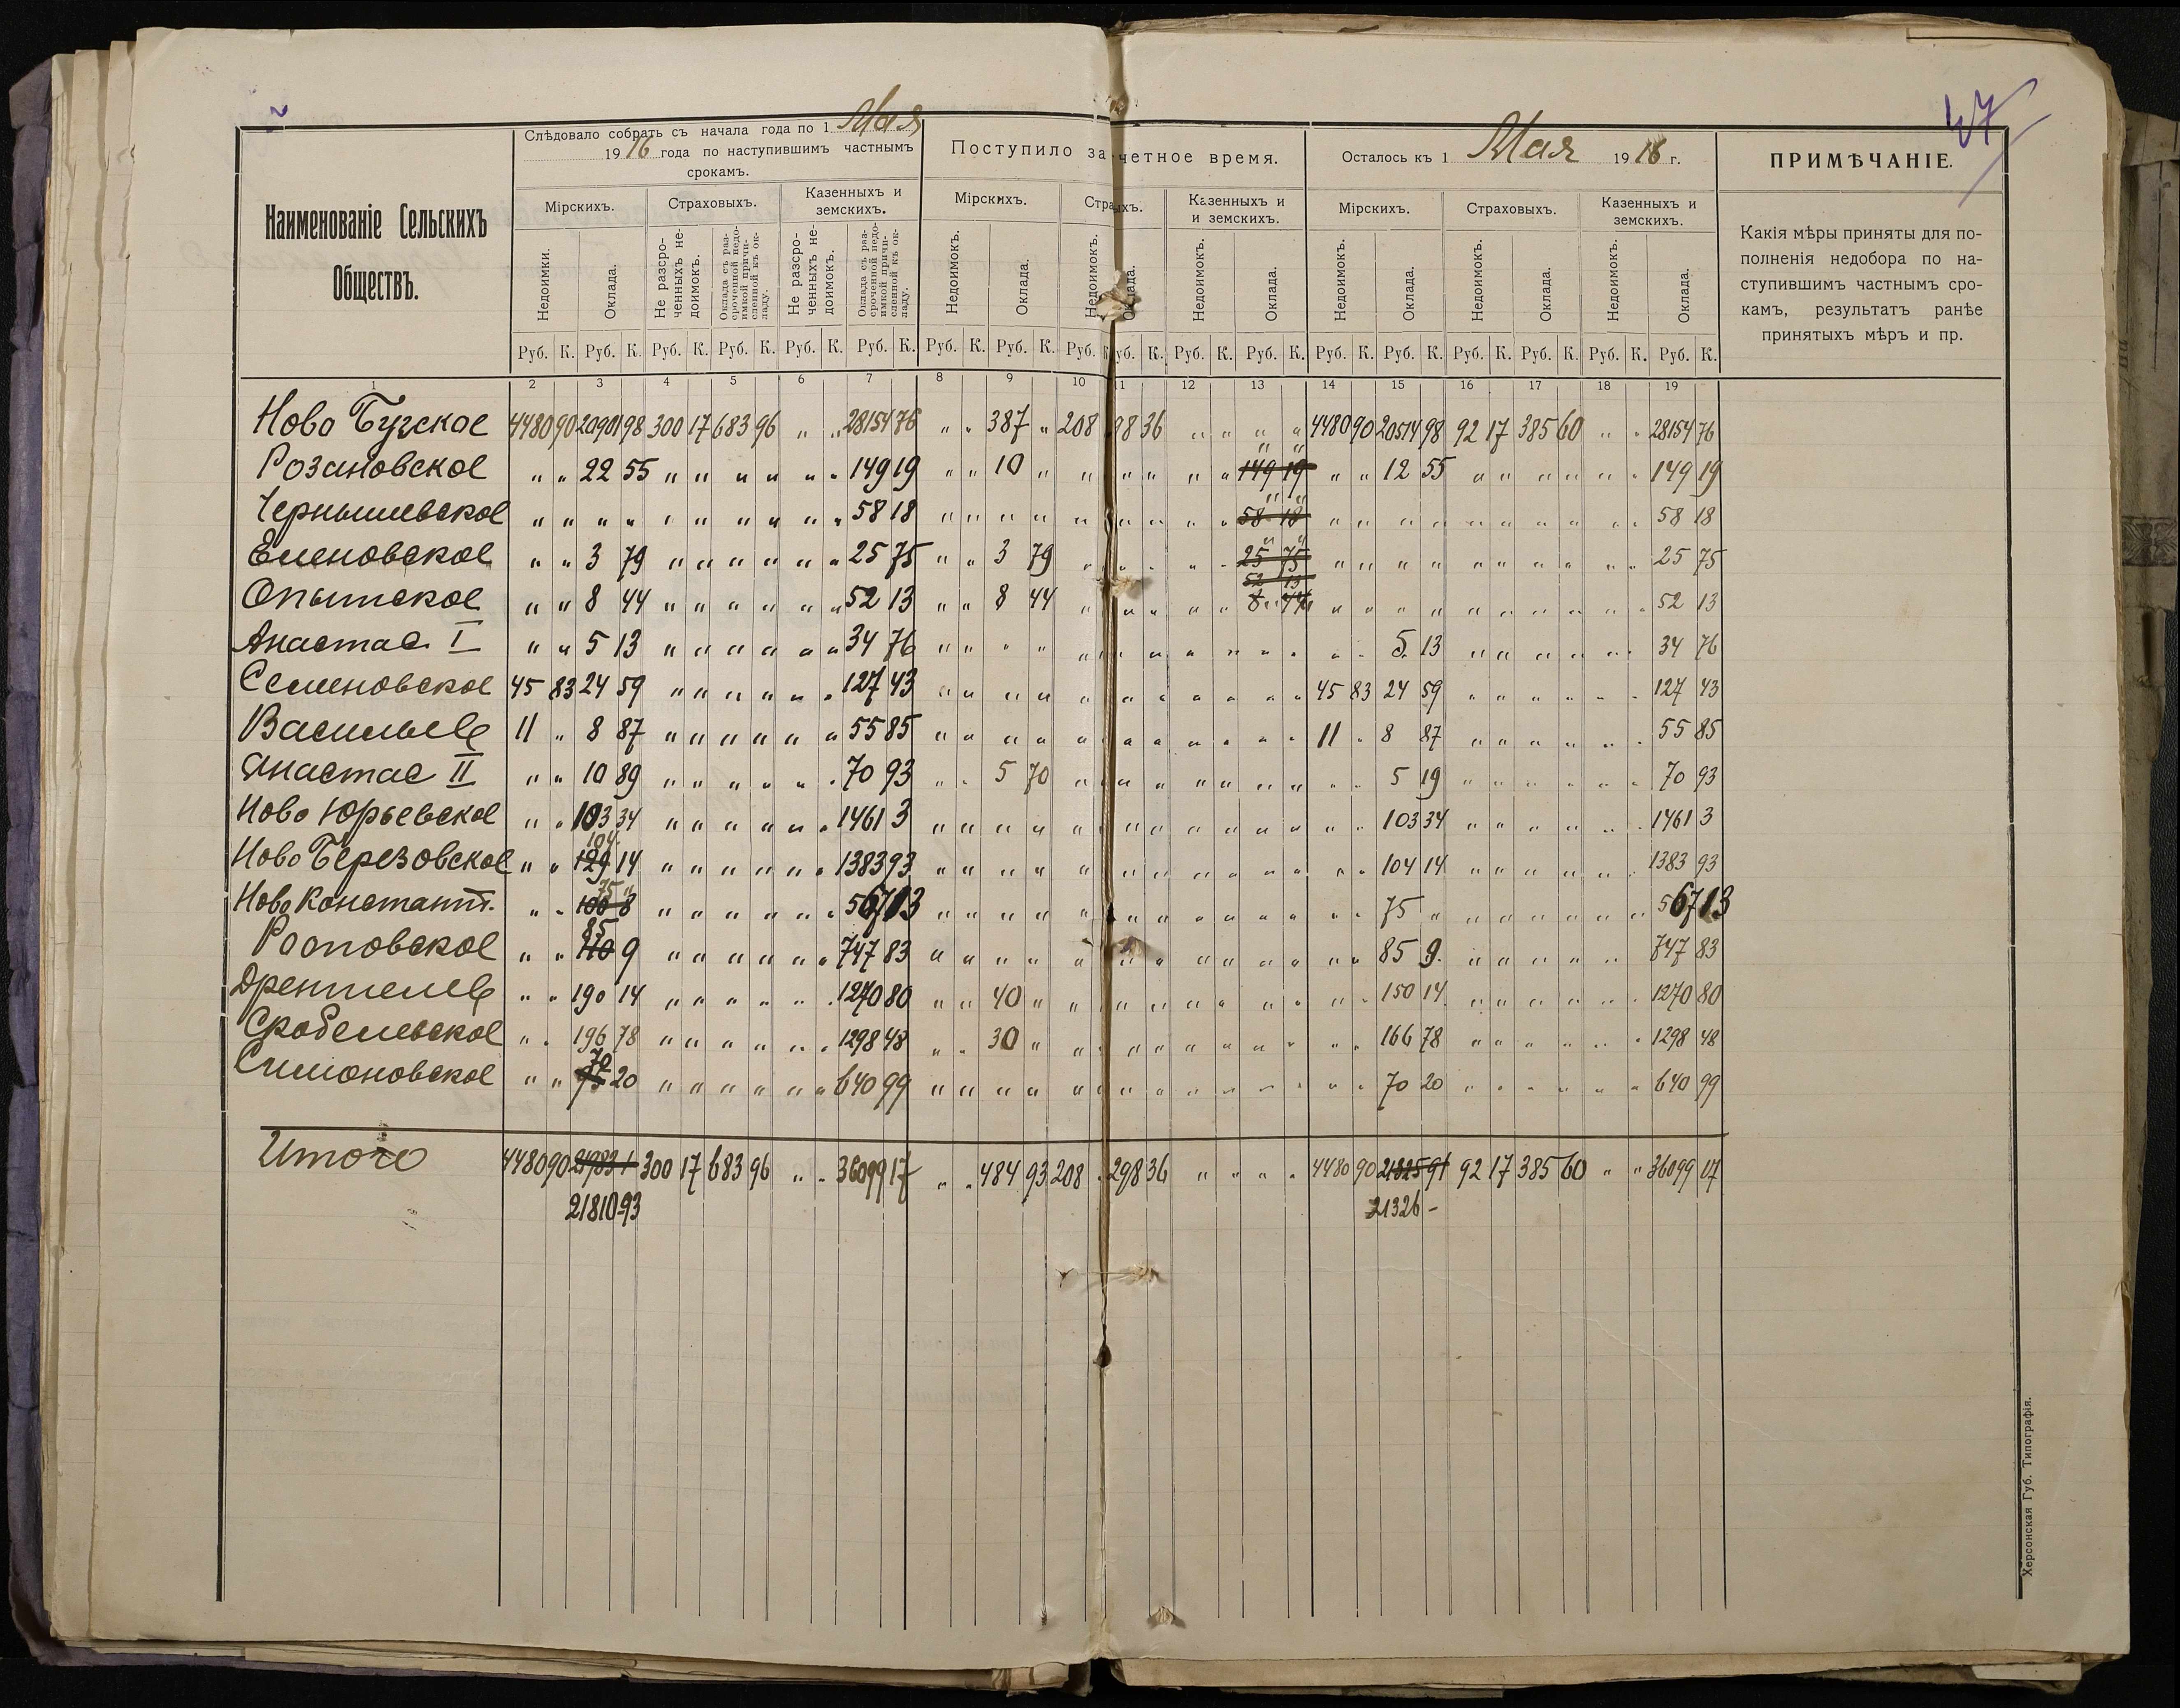 47
Наименованіе Сельскихъ Обществъ.
Слѣдовало собрать съ начала года по 1 Мая
1916 года по наступившимъ частнымъ
срокамъ.
Поступило за четное время.
Осталось къ 1 Мая 1916 г.
ПРИМѢЧАНІЕ.
Мірскихъ. Страховыхъ. Казенныхъ и земскихъ. Мірскихъ. Стра ыхъ. Казенныхъ и и земскихъ. Мірскихъ. Страховыхъ. Казенныхъ и земскихъ.
Недоимки. Оклада. Не разсроченныхъ недоимокъ. Оклада съ разсроченной недоимкой причисленной къ окладу. Не разсроченныхъ недоимокъ. Оклада съ разсроченной недоимкой причисленной къ окладу. Недоимокъ. Оклада. Недоимокъ. Оклада. Недоимокъ. Оклада. Недоимокъ. Оклада. Недоимокъ. Оклада. Недоимокъ. Оклада.
Какія мѣры приняты для по-
полненія недобора по на-
ступившимъ частнымъ сро-
камъ, результатъ ранѣе
принятыхъ мѣръ и пр.
Руб. К. Руб. К. Руб. К. Руб. К. Руб. К. Руб. К. Руб. К. Руб. К. Руб. К. уб. К. Руб. К. Руб. К. Руб. К. Руб. К. Руб. К. Руб. К. Руб. К. Руб. К.
1 2 3 4 5 6 7 8 9 10 11 12 13 14 15 16 17 18 19
Ново Бугское 4480 90 20901 98 300 17 683 96 " " 28154 76 " " 387 " 208 98 36 " " " " 4480 90 20514 98 92 17 385 60 " " 28154 76
Розановское " " 22 55 " " " " " " 149 19 " " 10 " " " " " " 149 19 " " 12 55 " " " " " " 149 19
Чернышевское " " " " " " " " " " 58 18 " " " " " " " " " 58 18 " " " " " " " " " " 58 18
Еленовское " " 3 79 " " " " " " 25 75 " " 3 79 " " " " " 25 75 " " " " " " " " " " 25 75
52 13
Опытское " " 8 44 " " " " " " 52 13 " " 8 44 " " " " " 8 44 " " " " " " " " " " 52 13
Анастас I " " 5 13 " " " " " " 34 76 " " " " " " " " " " " " " 5 13 " " " " " " 34 76
Семеновское 45 83 24 59 " " " " " " 127 43 " " " " " " " " " " " 45 83 24 59 " " " " " " 127 43
Васильев 11 " 8 87 " " " " " " 55 85 " " " " " " " " " " " 11 " 8 87 " " " " " " 55 85
Анастас II " " 10 89 " " " " " " 70 93 " " 5 70 " " " " " " " " " 5 19 " " " " " " 70 93
Ново Юрьевское " " 103 34 " " " " " " 1461 3 " " " " " " " " " " " " " 103 34 " " " " " " 1461 3
104
Ново Березовское " " 129 14 " " " " " " 1383 93 " " " " " " " " " " " " " 104 14 " " " " " " 1383 93
75 "
Ново Константт. " " 100 8 " " " " " " 567 13 " " " " " " " " " " " " " 75 " " " " " " " 567 13
85
Роотовское " " 110 9 " " " " " " 747 83 " " " " " " " " " " " " " 85 9 " " " " " " 747 83
Дрентелев " " 190 14 " " " " " " 1270 80 " " 40 " " " " " " " " " " 150 14 " " " " " " 1270 80
Скобелевское " " 196 78 " " " " " " 1298 48 " " 30 " " " " " " " " " " 166 78 " " " " " " 1298 48
70
Симоновское " " 95 20 " " " " " " 640 99 " " " " " " " " " " " " " 70 20 " " " " " " 640 99
Итого 4480 90 300 17 683 96 " " 36099 17 " " 484 93 208 298 36 " " " " 4480 90 92 17 385 60 " " 36099 07
21810 93 21326 -
Херсонская Губ. Типографія.